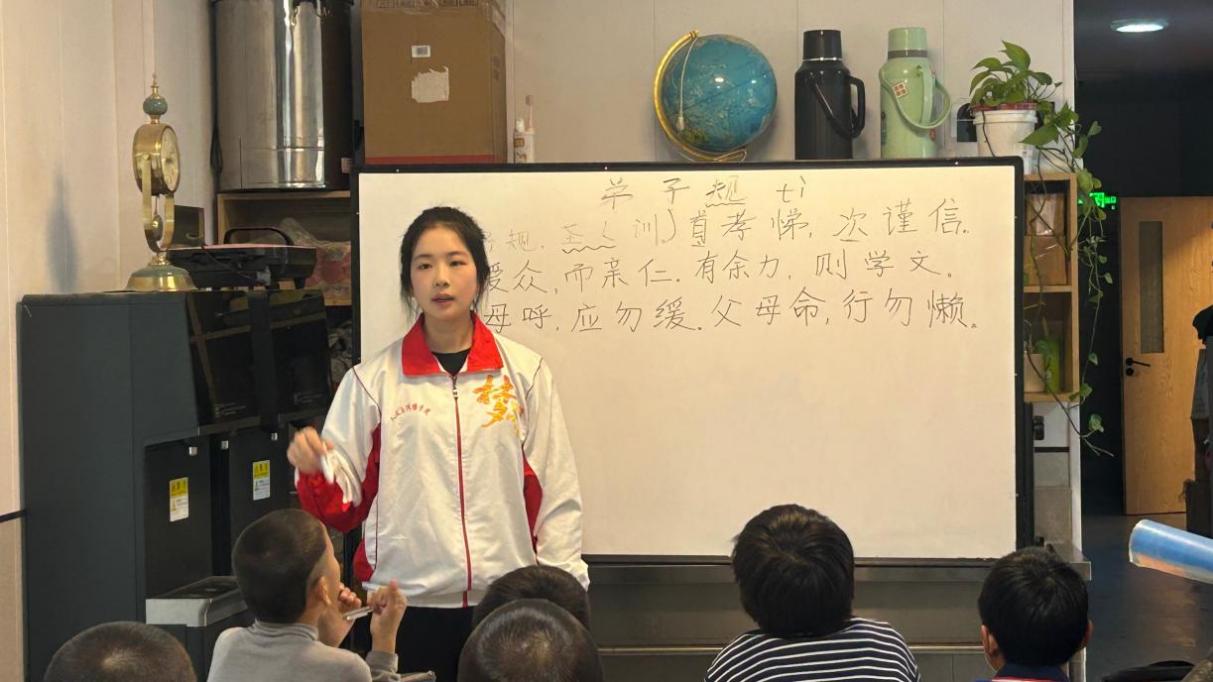 弟子规 tì
规,圣人训)首孝悌,次谨信.
爱众,而亲仁.有余力,则学文。
母呼,应勿缓.父母命,行勿懒。